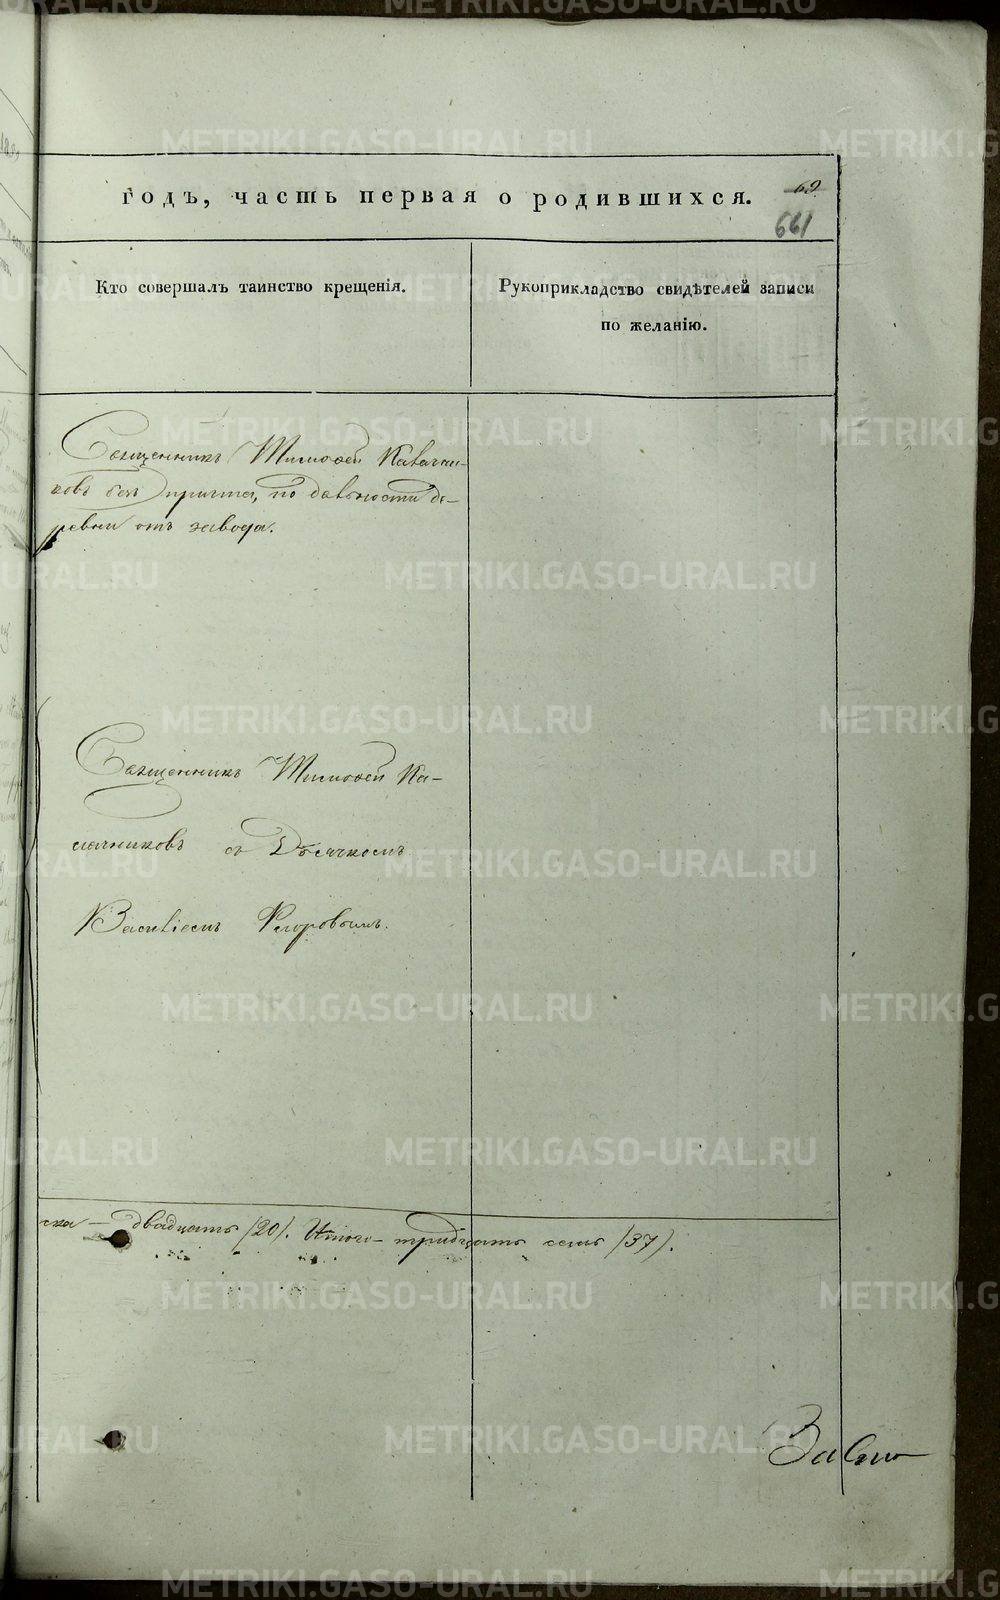 годъ, часть первая о родившихся.
69
661
Кто совершалъ таинство крещенія.
Рукоприкладство свидѣтелей записи
по желанію.
Священникъ Тимоѳей Калачни-
ковъ безъ причта, по дальности де-
ревни отъ завода.
Священникъ Тимоѳей Ка-
лачниковъ съ Дьячкомъ
Василіемъ
ска — двадцать /20/. Итого — тридцать семь /37/.
METRIKI.GASO-URAL.RU